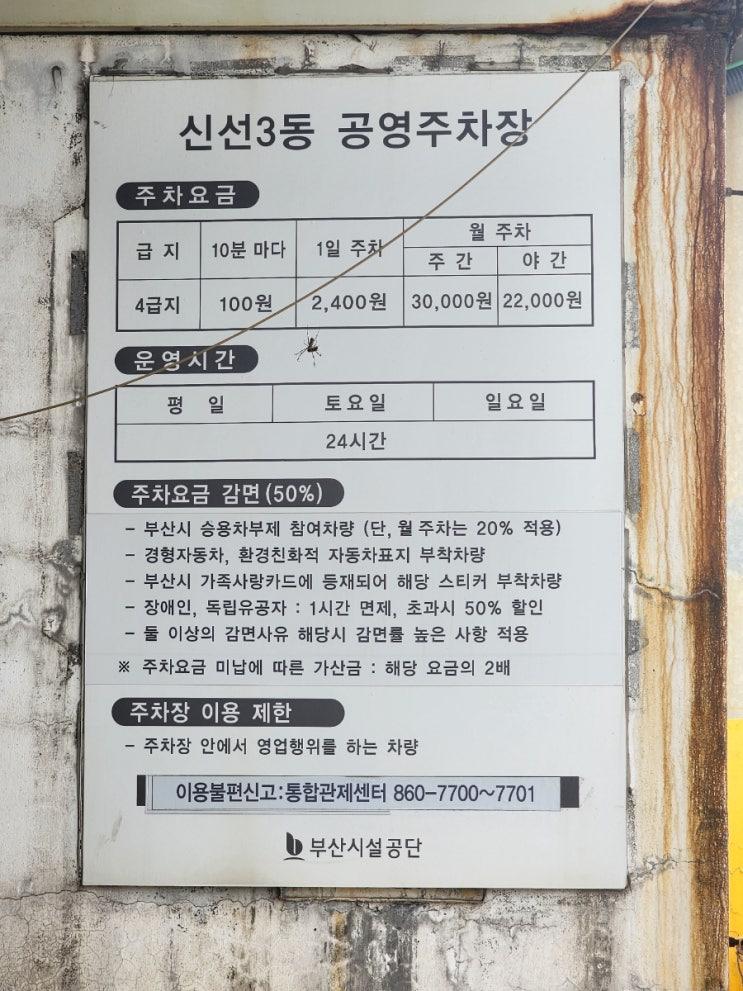 신선3동 공영주차장
주차요금
급 지 10분 마다 1일 주차 월 주차
주 간 야 간
4급지 100원 2,400원 30,000원 22,000원
운영시간
평 일 토요일 일요일
24시간
주차요금 감면(50%)
- 부산시 승용차부제 참여차량 (단, 월 주차는 20% 적용)
- 경형자동차, 환경친화적 자동차표지 부착차량
- 부산시 가족사랑카드에 등재되어 해당 스티커 부착차량
- 장애인, 독립유공자 : 1시간 면제, 초과시 50% 할인
- 둘 이상의 감면사유 해당시 감면률 높은 사항 적용
※ 주차요금 미납에 따른 가산금 : 해당 요금의 2배
주차장 이용 제한
- 주차장 안에서 영업행위를 하는 차량
이용불편신고:통합관제센터 860-7700~7701
부산시설공단